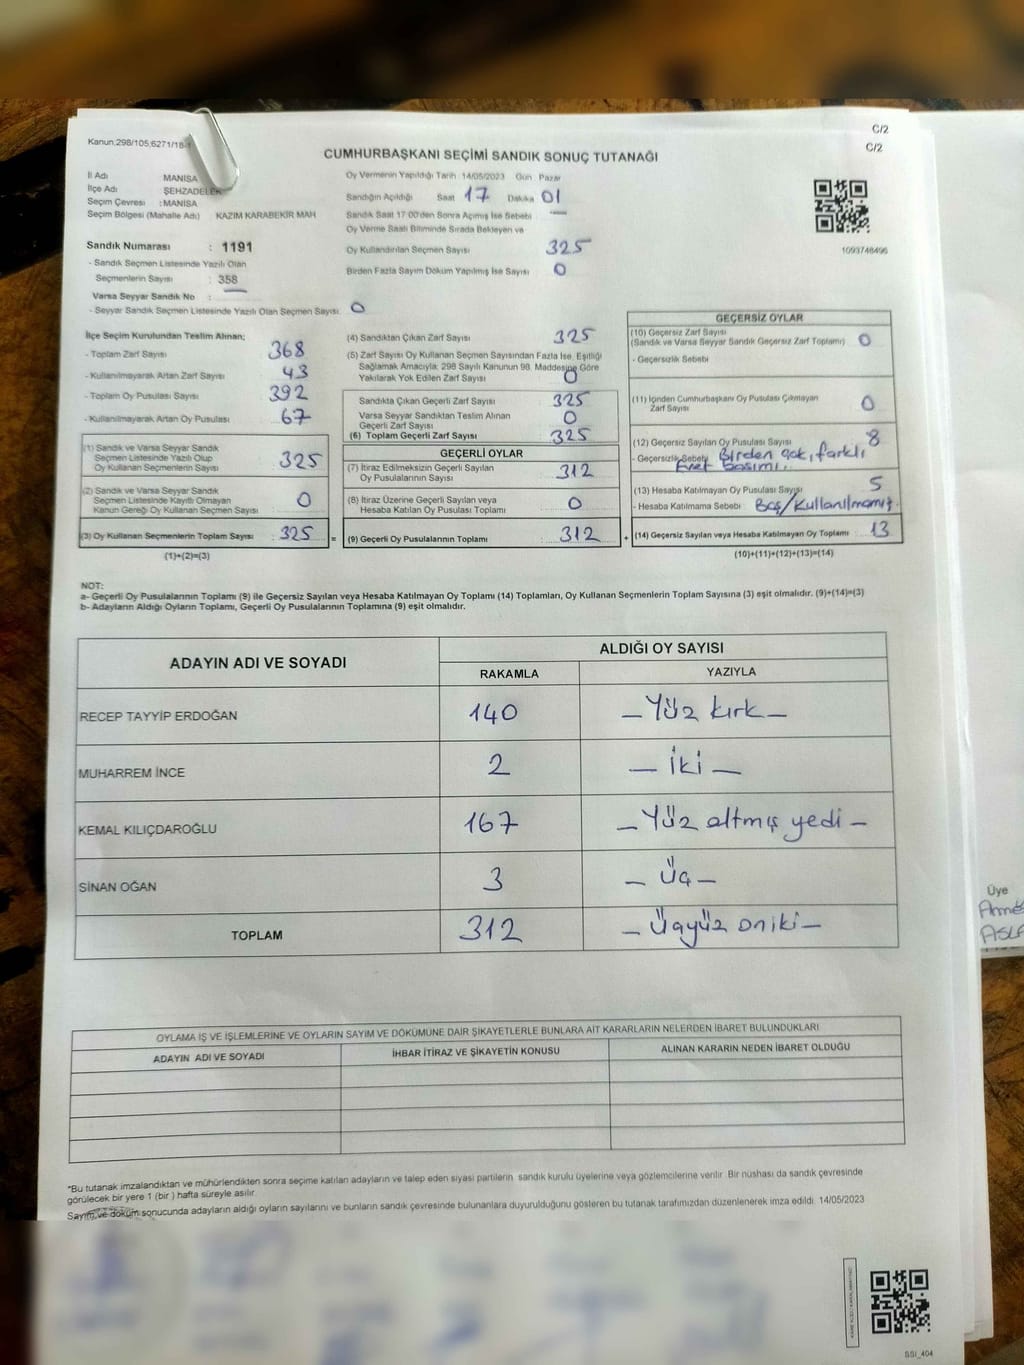 Kanun;298/105;6271/18-1
C/2
C/2
CUMHURBAŞKANI SEÇİMİ SANDIK SONUÇ TUTANAĞI
İl Adı MANİSA
İlçe Adı ŞEHZADELER
Seçim Çevresi : MANİSA
Seçim Bölgesi (Mahalle Adı) KAZIM KARABEKİR MAH
Sandık Numarası : 1191
- Sandık Seçmen Listesinde Yazılı Olan
Seçmenlerin Sayısı : 358
Varsa Seyyar Sandık No :
- Seyyar Sandık Seçmen Listesinde Yazılı Olan Seçmen Sayısı: 0
Oy Vermenin Yapıldığı Tarih 14/05/2023 Gün Pazar
Sandığın Açıldığı Saat 17 Dakika 01
Sandık Saat 17:00'den Sonra Açımış İse Sebebi —
Oy Verme Saati Bitiminde Sırada Bekleyen ve
Oy Kullandırılan Seçmen Sayısı 325
Birden Fazla Sayım Döküm Yapılmış İse Sayısı 0
1093748496
İlçe Seçim Kurulundan Teslim Alınan;
- Toplam Zarf Sayısı 368
- Kullanılmayarak Artan Zarf Sayısı 43
- Toplam Oy Pusulası Sayısı 392
- Kullanılmayarak Artan Oy Pusulası 67
(1) Sandık ve Varsa Seyyar Sandık
Seçmen Listesinde Yazılı Olup
Oy Kullanan Seçmenlerin Sayısı 325
(2) Sandık ve Varsa Seyyar Sandık
Seçmen Listesinde Kayıtlı Olmayan
Kanun Gereği Oy Kullanan Seçmen Sayısı 0
(3) Oy Kullanan Seçmenlerin Toplam Sayısı 325 =
(1)+(2)=(3)
(4) Sandıktan Çıkan Zarf Sayısı 325
(5) Zarf Sayısı Oy Kullanan Seçmen Sayısından Fazla İse, Eşitliği
Sağlamak Amacıyla; 298 Sayılı Kanunun 98. Maddesine Göre
Yakılarak Yok Edilen Zarf Sayısı 0
Sandıkta Çıkan Geçerli Zarf Sayısı 325
Varsa Seyyar Sandıktan Teslim Alınan
Geçerli Zarf Sayısı 0
(6) Toplam Geçerli Zarf Sayısı 325
GEÇERLİ OYLAR
(7) İtiraz Edilmeksizin Geçerli Sayılan
Oy Pusulalarının Sayısı 312
(8) İtiraz Üzerine Geçerli Sayılan veya
Hesaba Katılan Oy Pusulası Toplamı 0
(9) Geçerli Oy Pusulalarının Toplamı 312 +
GEÇERSİZ OYLAR
(10) Geçersiz Zarf Sayısı
(Sandık ve Varsa Seyyar Sandık Geçersiz Zarf Toplamı) 0
- Geçersizlik Sebebi
(11) İçinden Cumhurbaşkanı Oy Pusulası Çıkmayan
Zarf Sayısı 0
(12) Geçersiz Sayılan Oy Pusulası Sayısı 8
- Geçersizlik Sebebi Birden çok, farklı
Evet basımı..
(13) Hesaba Katılmayan Oy Pusulası Sayısı 5
- Hesaba Katılmama Sebebi Boş/Kullanılmamış
(14) Geçersiz Sayılan veya Hesaba Katılmayan Oy Toplamı 13
(10)+(11)+(12)+(13)=(14)
NOT:
a- Geçerli Oy Pusulalarının Toplamı (9) ile Geçersiz Sayılan veya Hesaba Katılmayan Oy Toplamı (14) Toplamları, Oy Kullanan Seçmenlerin Toplam Sayısına (3) eşit olmalıdır. (9)+(14)=(3)
b- Adayların Aldığı Oyların Toplamı, Geçerli Oy Pusulalarının Toplamına (9) eşit olmalıdır.
ADAYIN ADI VE SOYADI ALDIĞI OY SAYISI
RAKAMLA YAZIYLA
RECEP TAYYİP ERDOĞAN 140 – Yüz kırk –
MUHARREM İNCE 2 – İki –
KEMAL KILIÇDAROĞLU 167 – Yüz altmış yedi –
SİNAN OĞAN 3 – Üç –
TOPLAM 312 – Üçyüz oniki –
Üye
OYLAMA İŞ VE İŞLEMLERİNE VE OYLARIN SAYIM VE DÖKÜMÜNE DAİR ŞİKAYETLERLE BUNLARA AİT KARARLARIN NELERDEN İBARET BULUNDUKLARI
ADAYIN ADI VE SOYADI İHBAR İTİRAZ VE ŞİKAYETİN KONUSU ALINAN KARARIN NEDEN İBARET OLDUĞU
*Bu tutanak imzalandıktan ve mühürlendikten sonra seçime katılan adayların ve talep eden siyasi partilerin sandık kurulu üyelerine veya gözlemcilerine verilir. Bir nüshası da sandık çevresinde
görülecek bir yere 1 (bir ) hafta süreyle asılır.
Sayım ve döküm sonucunda adayların aldığı oyların sayılarını ve bunların sandık çevresinde bulunanlara duyurulduğunu gösteren bu tutanak tarafımızdan düzenlenerek imza edildi. 14/05/2023
SSI_404